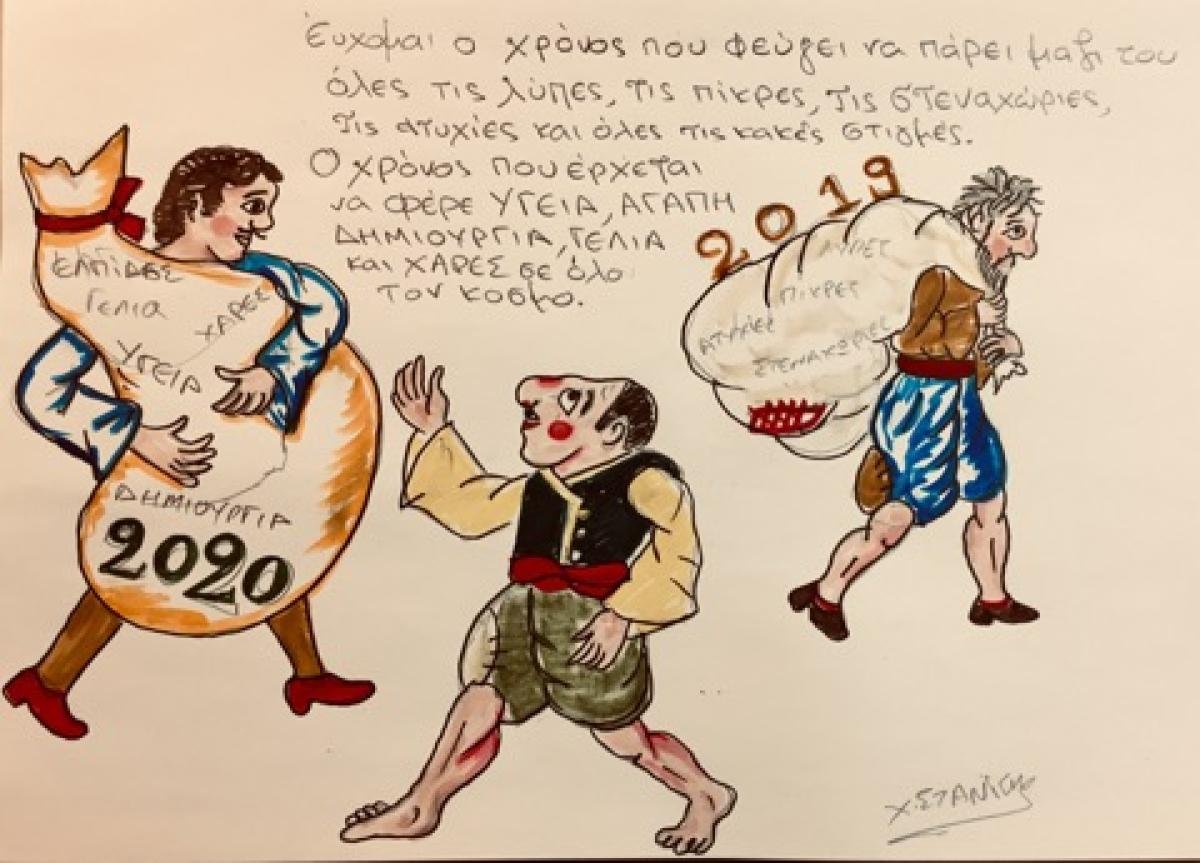 Εύχομαι ο χρόνος που φεύγει να πάρει μαζί του
όλες τις λύπες, τις πίκρες, τις στεναχώριες,
τις ατυχίες και όλες τις κακές στιγμές.
Ο χρόνος που έρχεται
να φέρε ΥΓΕΙΑ, ΑΓΑΠΗ
ΔΗΜΙΟΥΡΓΙΑ, ΓΕΛΙΑ
και ΧΑΡΕΣ σε όλο
τον κοσμο.
2019
ΛΥΠΕΣ
ΠΙΚΡΕΣ
ΑΤΥΧΙΕΣ
ΣΤΕΝΑΧΩΡΙΕΣ
ΕΛΠΙΔΕΣ
ΓΕΛΙΑ
ΧΑΡΕΣ
ΥΓΕΙΑ
ΔΗΜΙΟΥΡΓΙΑ
2020